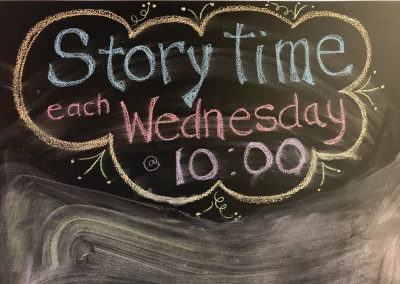 Story time
each Wednesday
@ 10:00